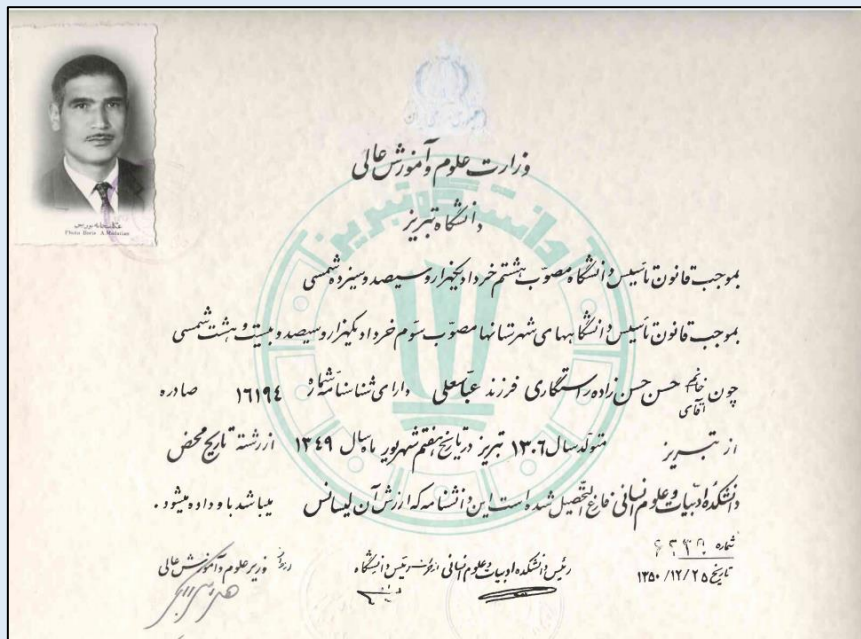 عکاسخانه بوریس
Photo Boris A Modarian
دانشگاه تبریز
وزارت علوم و آموزش عالی
دانشگاه تبریز
بموجب قانون تأسیس دانشگاه مصوّب هشتم خرداد یکهزار و سیصد و سیزده شمسی
بموجب قانون تأسیس دانشگاههای شهرستانها مصوّب سوّم خرداد یکهزار و سیصد و بیست و هشت شمسی
چون خانم آقای حسن حسن زاده رستگاری فرزند عباسعلی دارای شناسنامه شماره ۱۶۱۹۴ صادره
از تبریز متولد سال ۱۳۰۶ تبریز در تاریخ هفتم شهریور ماه سال ۱۳۴۹ از رشته تاریخ محض
دانشکده ادبیات و علوم انسانی فارغ التحصیل شده است این دانشنامه که ارزش آن لیسانس میباشد باو داده میشود.
شماره
تاریخ ۱۳۵۰/۱۲/۲۵
رئیس دانشکده ادبیات و علوم انسانی
رئیس دانشگاه
وزیر علوم و آموزش عالی